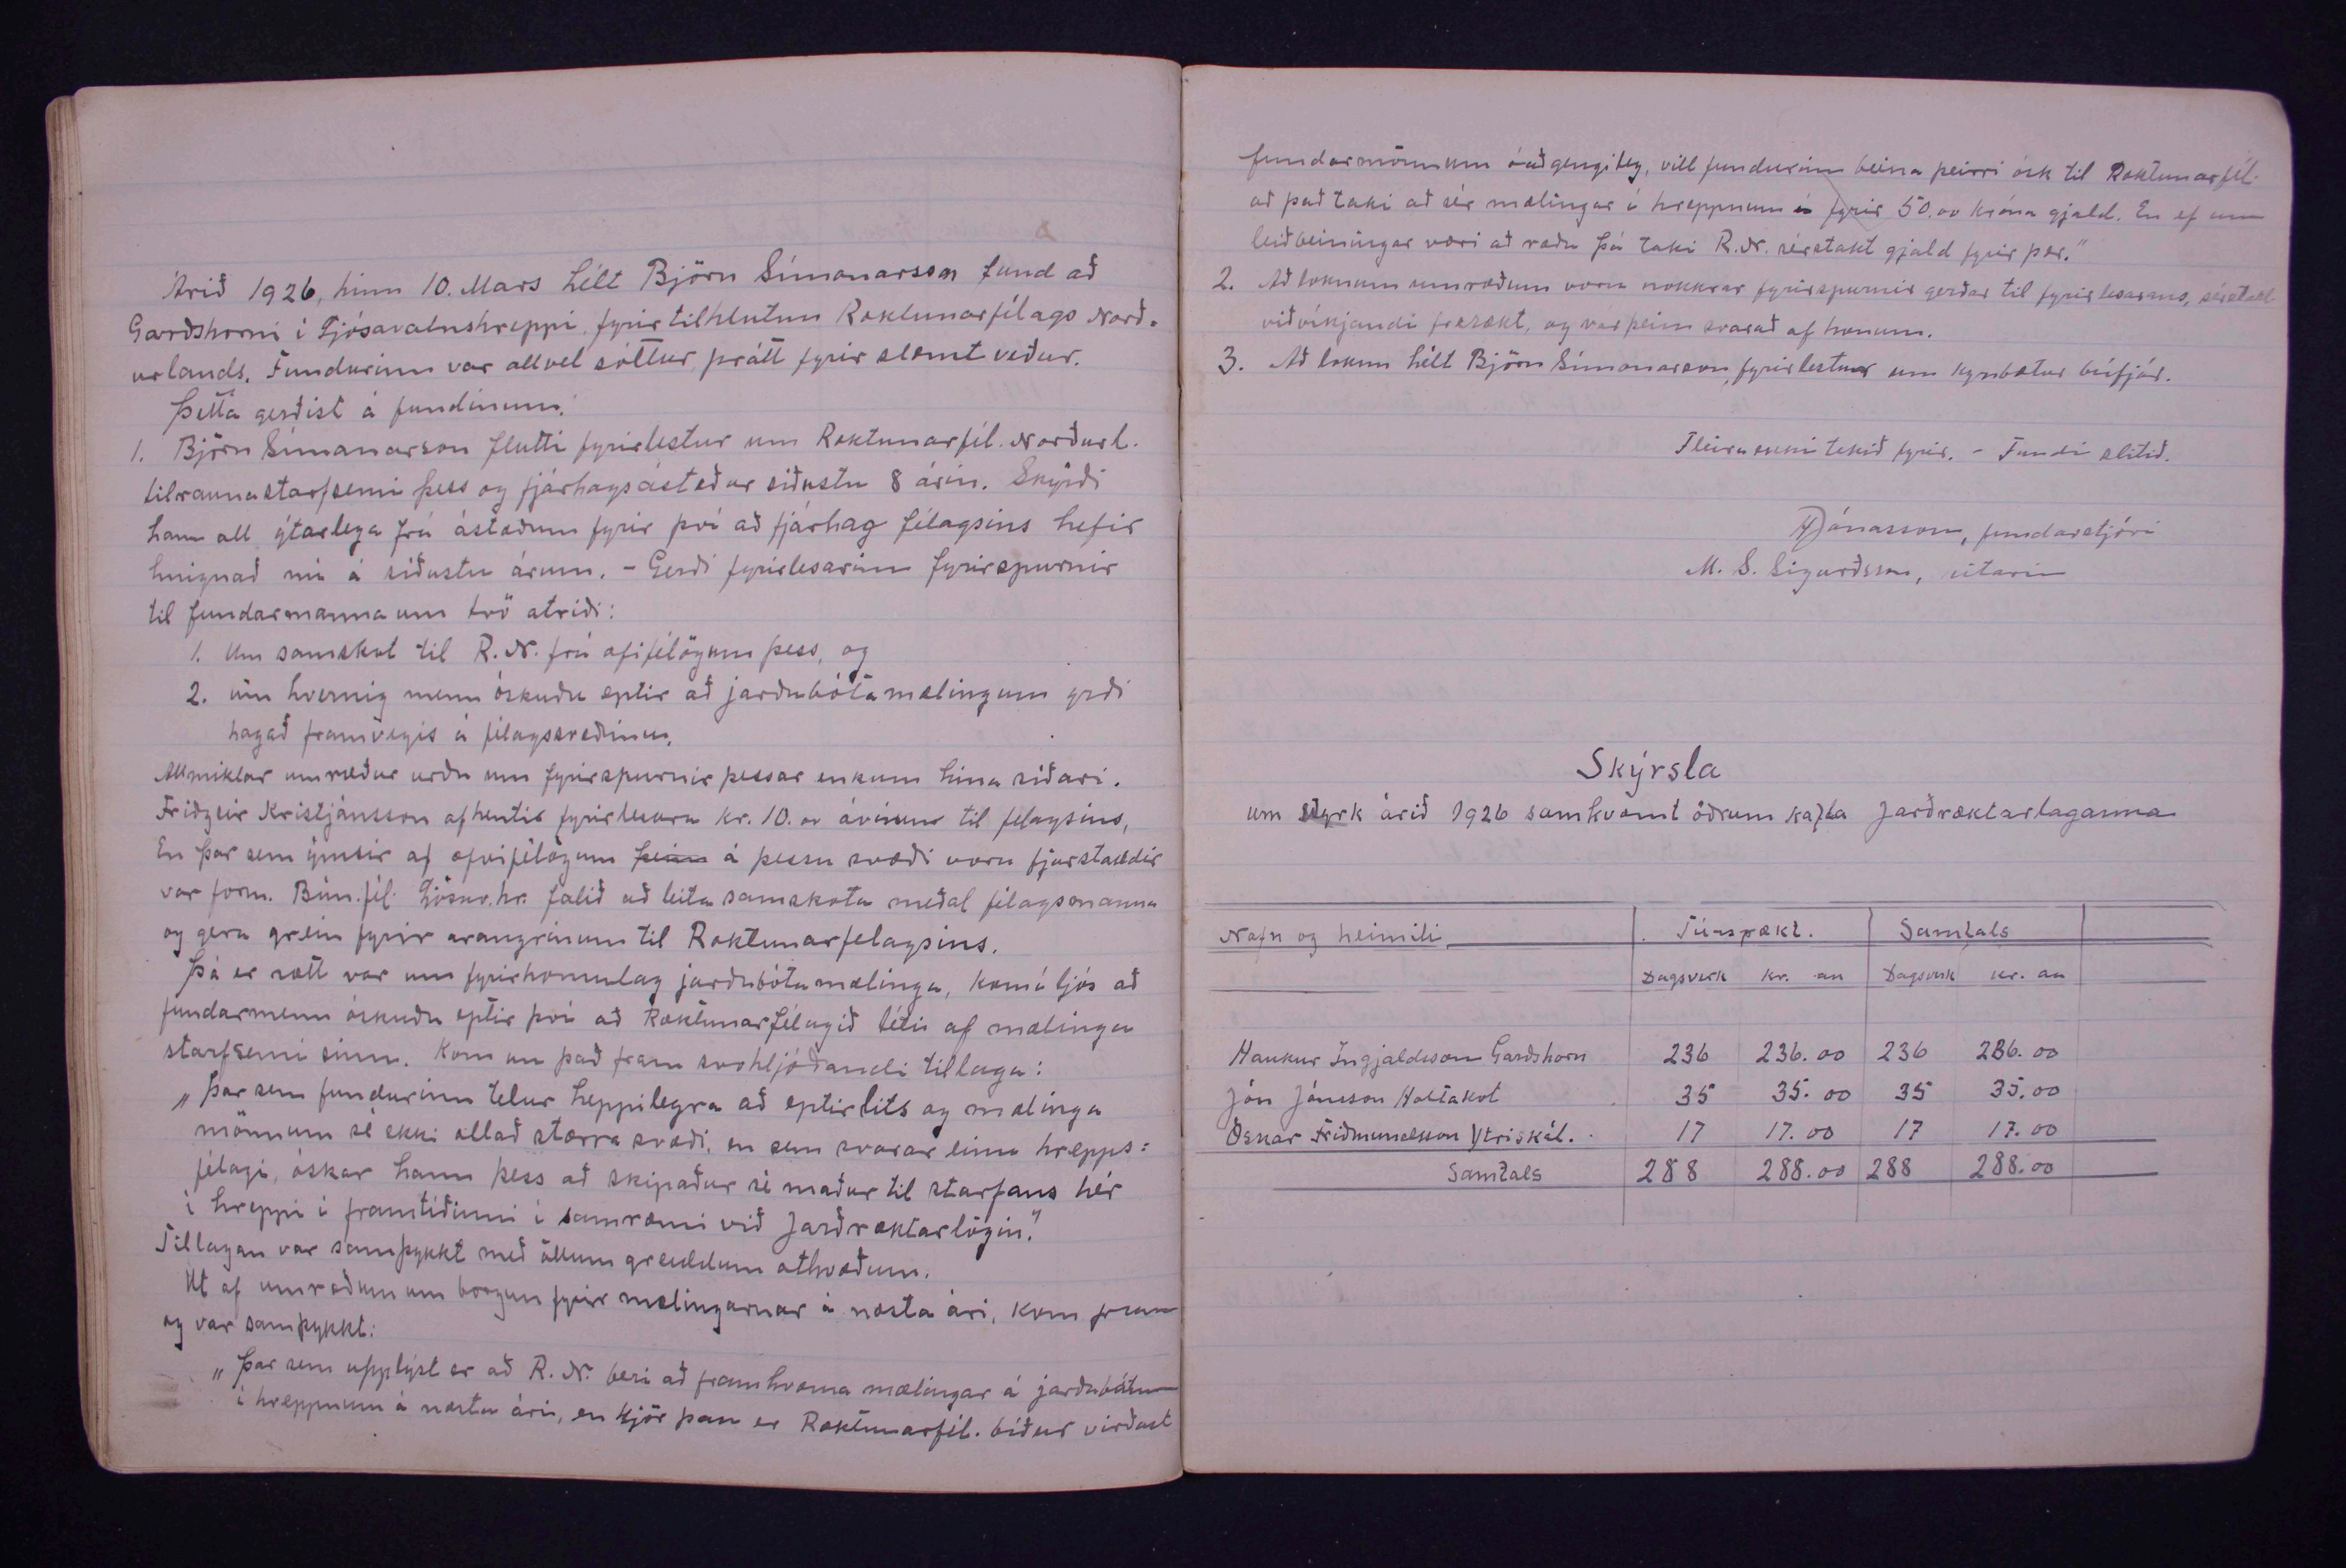 Árið 1926, hinn 10. Mars hélt Björn Símonarson fund að
Garðshorni í Ljósavatnshreppi, fyrir tilhlutun Ræktunarfélags Norð-
urlands. Fundurinn var allvel sóttur, þrátt fyrir slæmt veður.
Þetta gerðist á fundinum:
1. Björn Símonarson flutti fyrirlestur um Ræktunarfél. Norðurl.
tilraunastarfsemi þess og fjárhagsástæður síðustu 8 árin. Skýrði
hann all ýtarlega frá ástæðum fyrir því að fjárhag félagsins hefir
hnignað nú á síðustu árum. - Gerði fyrirlesarinn fyrirspurnir
til fundarmanna um tvö atriði:
1. Um samskot til R.N. frá æfifélögum þess, og
2. um hvernig menn óskuðu eptir að jarðabótamælingum yrði
hagað framvegis á félagssvæðinu.
Allmiklar umræður urðu um fyrirspurnir þessar einkum hina síðari.
Friðgeir Kristjánsson afhenti fyrirlesara kr. 10.00 til félagsins,
En þar sem ýmsir af æfifélögum þeim á þessu svæði voru fjarstaddir
var form. Bún.fél. Ljósav.hr. falið að leita samskota meðal félagsmanna
og gera grein fyrir árangrinum til Ræktunarfélagsins.
Þá er rætt var um fyrirkomulag jarðabótamælinga, kom í ljós að
fundarmenn óskuðu eptir því að Ræktunarfélagið léti af mælinga
starfsemi sinni. Kom um það fram svohljóðandi tillaga:
„Þar sem fundurinn telur heppilegra að eptirlits og mælinga
mönnum sé ekki ætlað stærra svæði, en sem svarar einu hrepps-
félagi, óskar hann þess að skipaður sé maður til starfans hér
í hreppi í framtíðinni í samræmi við Jarðræktarlögin."
Tillagan var samþykkt með öllum greiddum atkvæðum.
Út af umræðum um borgun fyrir mælingarnar á næsta ári, kom fram
og var samþykkt:
„Þar sem upplýst er að R.N. beri að framkvæma mælingar á jarðabótum
í hreppnum á næsta ári, en kjör þau er Ræktunarfél. býður virðast
fundarmönnum óaðgengileg, vill fundurinn beina þeirri ósk til Ræktunarfél.
að það taki að sér mælingar í hreppnum fyrir 50.00 króna gjald. En ef um
leiðbeiningar væri að ræða þá taki R.N. sérstakt gjald fyrir þær."
2. Að loknum umræðum voru nokkrar fyrirspurnir gerðar til fyrirlesarans, sérstakl
viðvíkjandi frærækt, og var þeim svarað af honum.
3. Að lokum hélt Björn Símonarson fyrirlestur um kynbætur búfjár.
Fleira ekki tekið fyrir. - Fundi slitið.
Jónasson, fundarstjóri
M. S. Sigurðsson, ritari
Skýrsla
um styrk árið 1926 samkvæmt öðrum kafla Jarðræktarlaganna
Nafn og heimili Túnrækt. Samtals
Dagsverk kr. au Dagsverk kr. au
Haukur Ingjaldsson Garðshorn 236 236.00 236 236.00
Jón Jónsson Holtakot 35 35.00 35 35.00
Óskar Friðmundsson Ytriskál. 17 17.00 17 17.00
Samtals 288 288.00 288 288.00